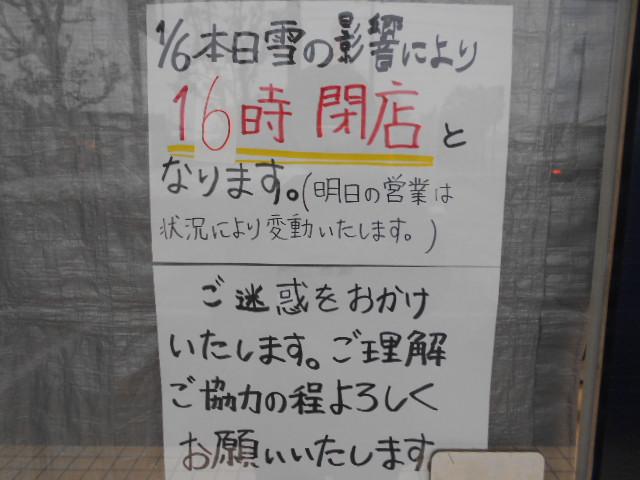 1/6本日雪の影響により
16時 閉店と
なります。(明日の営業は
状況により変動いたします。)
ご迷惑をおかけ
いたします。ご理解
ご協力の程よろしく
お願いいたします